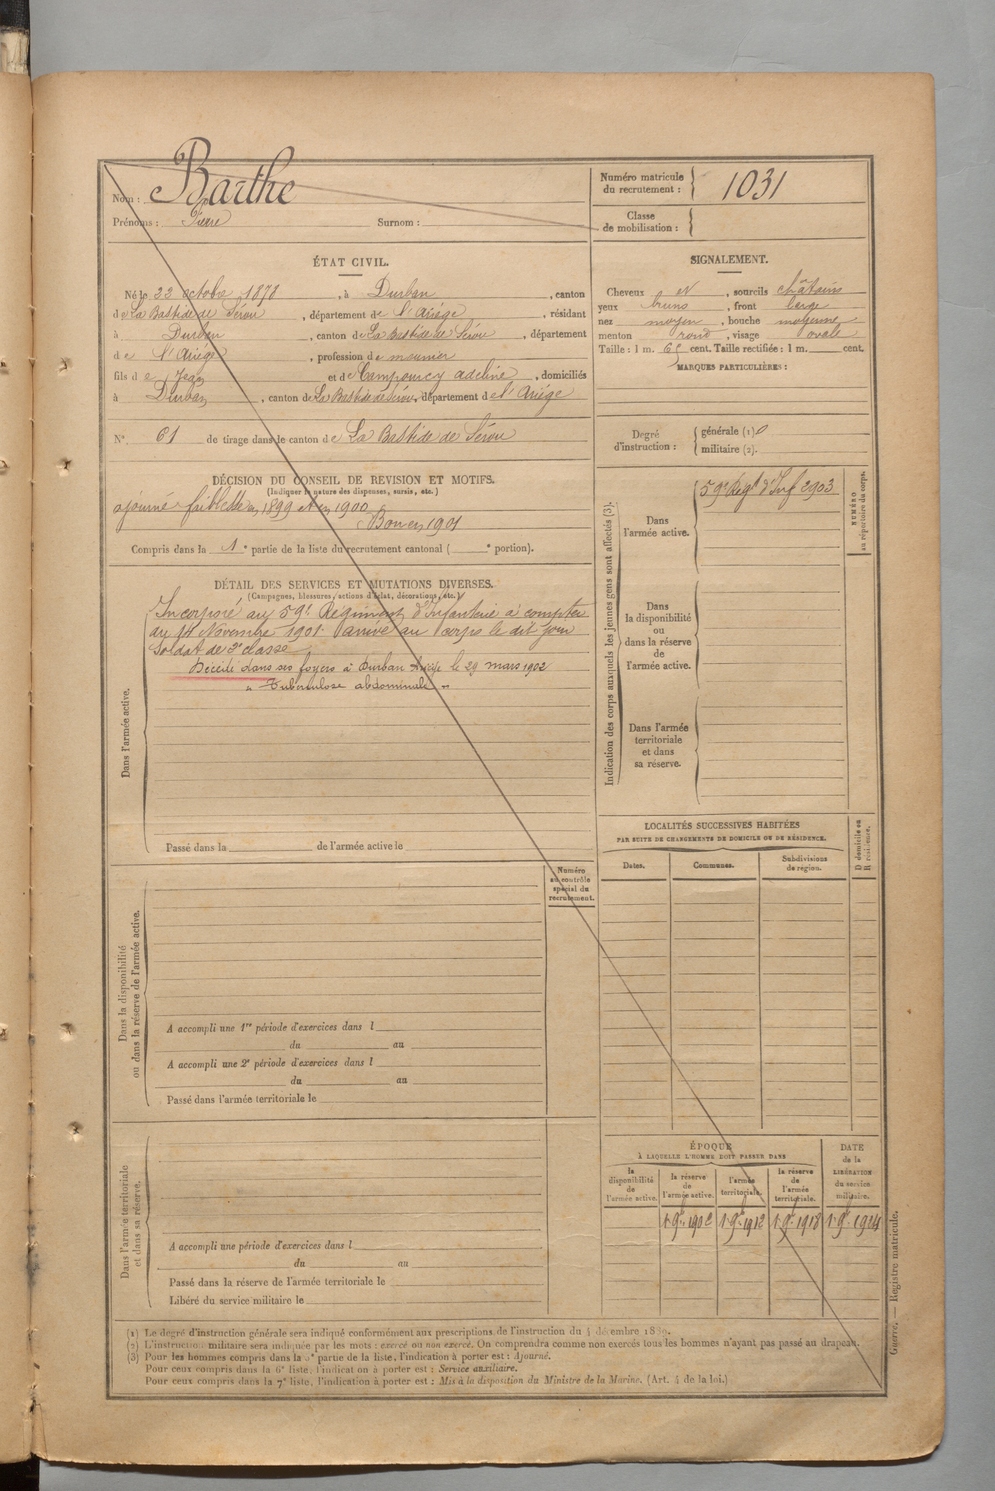 Nom : Barthe
Prénoms : Pierre Surnom :
Numéro matricule du recrutement : 1031
Classe de mobilisation :
ÉTAT CIVIL.
Né le 22 octobre 1878, à Durban, canton
de La Bastide de Sérou, département de l'Ariège, résidant
à Durban, canton de La Bastide de Sérou, département
de l'Ariège, profession de meunier
fils de Jean et de Campourcy Adeline, domiciliés
à Durban, canton de La Bastide de Sérou, département de l'Ariége
N° 61 de tirage dans le canton de La Bastide de Sérou
SIGNALEMENT.
Cheveux et, sourcils châtains
yeux bruns, front large
nez moyen, bouche moyenne
menton rond, visage ovale
Taille : 1 m. cent. Taille rectifiée : 1 m. cent.
MARQUES PARTICULIÈRES :
Degré d'instruction : générale (1)
militaire (2).
DÉCISION DU CONSEIL DE REVISION ET MOTIFS.
(Indiquer la nature des dispenses, sursis, etc.)
ajourné faiblesse en 1899 et en 1900
Bon en 1901
Compris dans la 1e partie de la liste du recrutement cantonal ( e portion).
DÉTAIL DES SERVICES ET MUTATIONS DIVERSES.
(Campagnes, blessures, actions d'éclat, décorations, etc.)
Dans l'armée active.
Incorporé au 59e Régiment d'Infanterie à compter
du 14 Novembre 1901 arrivé au corps le dit jour
Soldat de 2e classe
Décédé dans ses foyers à Durban Ariège le 29 mars 1902
" Tuberculose abdominale "
Passé dans la de l'armée active le
Numéro au contrôle spécial du recrutement.
Dans la disponibilité ou dans la réserve de l'armée active.
A accompli une 1re période d'exercices dans l
du au
A accompli une 2e période d'exercices dans l
du au
Passé dans l'armée territoriale le
Dans l'armée territoriale et dans sa réserve.
A accompli une période d'exercices dans l
du au
Passé dans la réserve de l'armée territoriale le
Libéré du service militaire le
Indication des corps auxquels les jeunes gens sont affectés (3).
Dans l'armée active.
59e Régt d'Inf 2903
NUMÉRO au répertoire du corps.
Dans la disponibilité ou dans la réserve de l'armée active.
Dans l'armée territoriale et dans sa réserve.
LOCALITÉS SUCCESSIVES HABITÉES
PAR SUITE DE CHANGEMENTS DE DOMICILE OU DE RÉSIDENCE.
Dates. Communes. Subdivisions de région. D domicile ou R résidence.
ÉPOQUE
À LAQUELLE L'HOMME DOIT PASSER DANS
DATE de la LIBÉRATION du service militaire.
la disponibilité de l'armée active. la réserve de l'armée active. l'armée territoriale. la réserve de l'armée territoriale.
1 9bre 1902 1 9bre 1912 1 9bre 1918 1 9bre 1924
(1) Le degré d'instruction générale sera indiqué conformément aux prescriptions de l'instruction du 4 décembre 1889.
(2) L'instruction militaire sera indiquée par les mots : exercé ou non exercé. On comprendra comme non exercés tous les hommes n'ayant pas passé au drapeau.
(3) Pour les hommes compris dans la 5e partie de la liste, l'indication à porter est : Ajourné.
Pour ceux compris dans la 6e liste, l'indication à porter est : Service auxiliaire.
Pour ceux compris dans la 7e liste, l'indication à porter est : Mis à la disposition du Ministre de la Marine. (Art. 4 de la loi.)
Guerre. — Registre matricule.